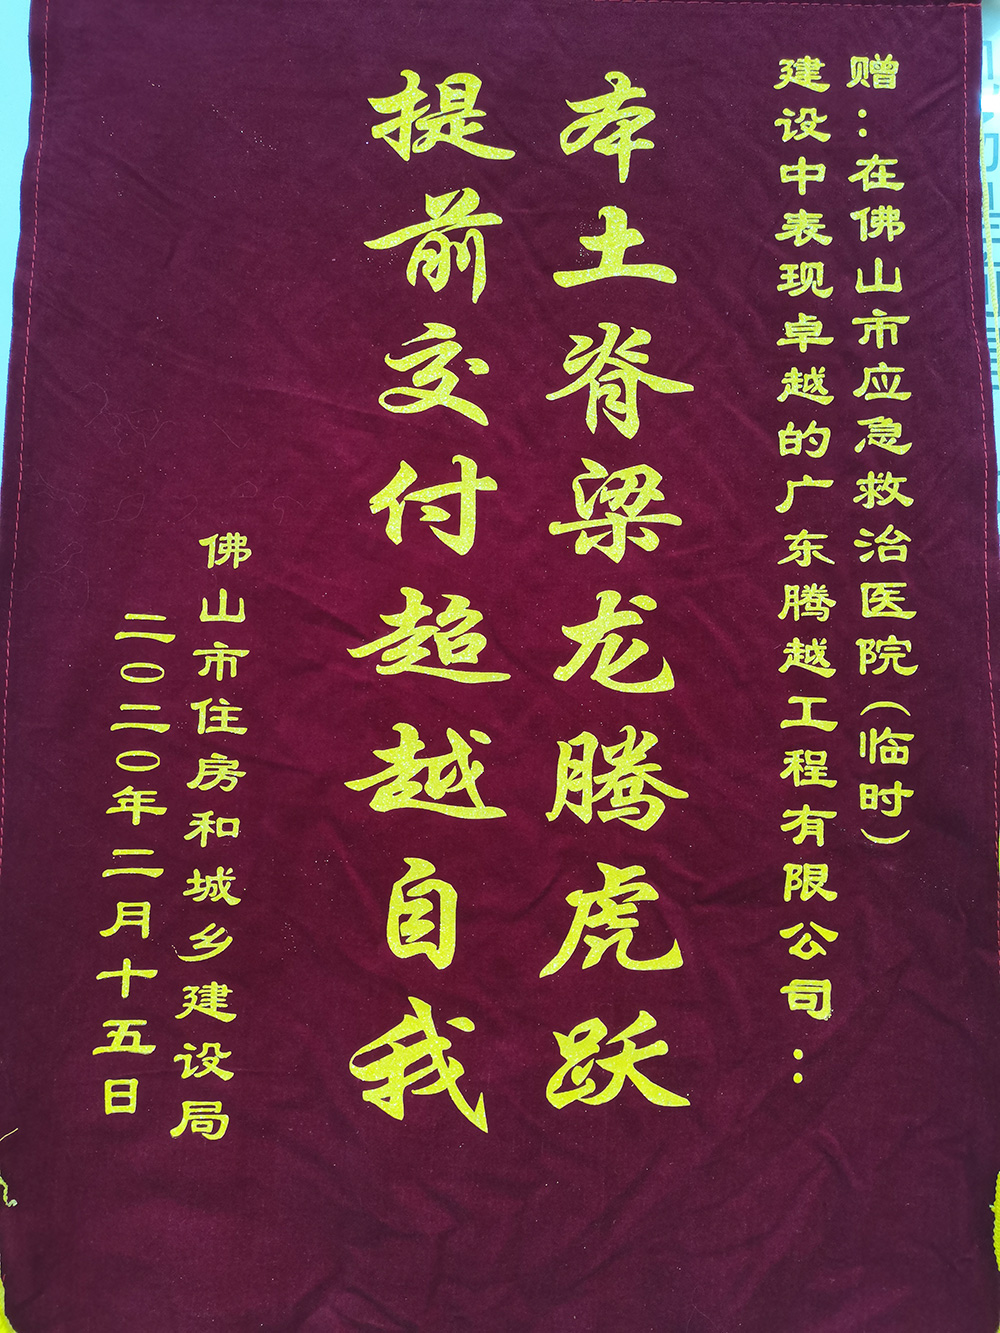 赠:在佛山市应急救治医院(临时)
建设中表现卓越的广东腾越工程有限公司:
本土脊梁龙腾虎跃
提前交付超越自我
佛山市住房和城乡建设局
二〇二〇年二月十五日